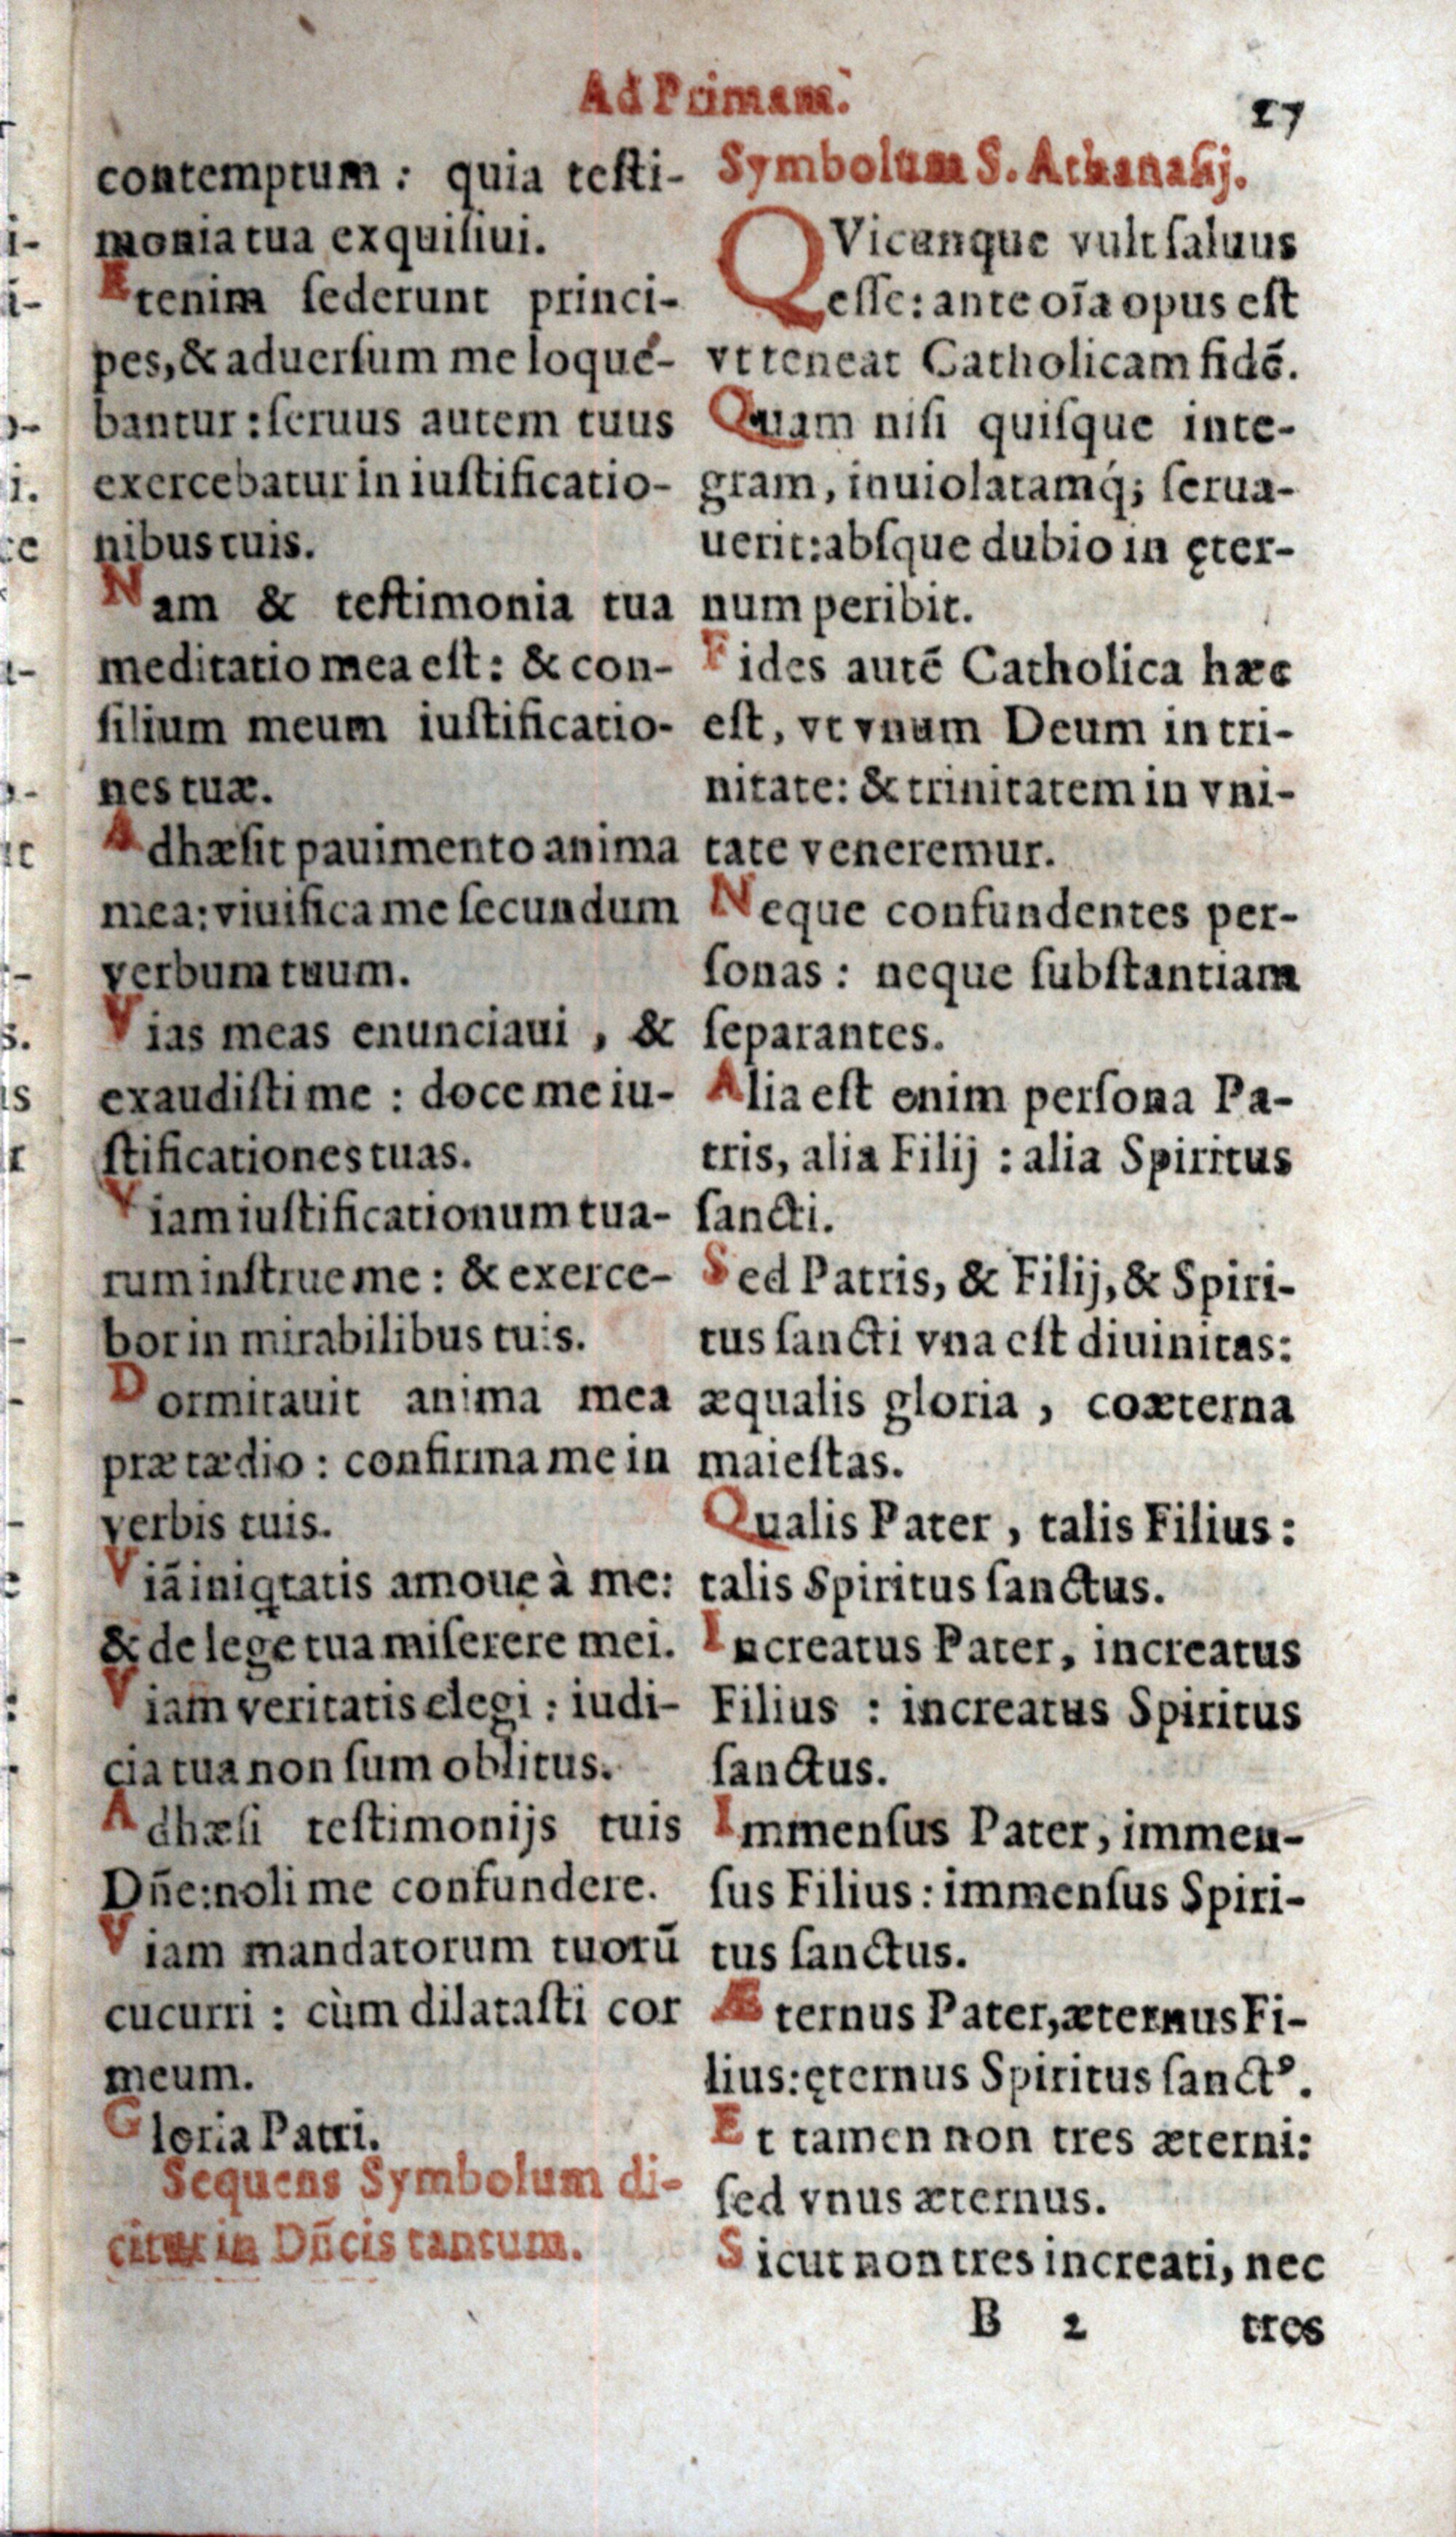 Ad Primam.
27
contemptum : quia teſti-
monia tua exquiſiui.
Etenim ſederunt princi-
pes, & aduerſum me loque-
bantur : ſeruus autem tuus
exercebatur in iuſtificatio-
nibus tuis.
Nam & teſtimonia tua
meditatio mea eſt : & con-
ſilium meum iuſtificatio-
nes tuæ.
Adhæſit pauimento anima
mea : viuifica me ſecundum
verbum tuum.
Vias meas enunciaui , &
exaudiſti me : doce me iu-
ſtificationes tuas.
Viam iuſtificationum tua-
rum inſtrue me : & exerce-
bor in mirabilibus tuis.
Dormitauit anima mea
præ tædio : confirma me in
verbis tuis.
Viā iniqtatis amoue à me :
& de lege tua miſerere mei.
Viam veritatis elegi : iudi-
cia tua non ſum oblitus.
Adhæſi teſtimonijs tuis
Dñe : noli me confundere.
Viam mandatorum tuorū
cucurri : cùm dilataſti cor
meum.
Gloria Patri.
Sequens Symbolum di-
citur in Dñcis tantum.
Symbolum S. Athanaſij.
QVicunque vult ſaluus
eſſe : ante oīa opus eſt
vt teneat Catholicam fidē.
Quam niſi quiſque inte-
gram, inuiolatamq́; ſerua-
uerit : abſque dubio in ęter-
num peribit.
Fides autē Catholica hæc
eſt, vt vnum Deum in tri-
nitate : & trinitatem in vni-
tate veneremur.
Neque confundentes per-
ſonas : neque ſubſtantiam
ſeparantes.
Alia eſt enim perſona Pa-
tris, alia Filij : alia Spiritus
ſancti.
Sed Patris, & Filij, & Spiri-
tus ſancti vna eſt diuinitas :
æqualis gloria , coæterna
maieſtas.
Qualis Pater , talis Filius :
talis Spiritus ſanctus.
Increatus Pater, increatus
Filius : increatus Spiritus
ſanctus.
Immenſus Pater, immen-
ſus Filius : immenſus Spiri-
tus ſanctus.
Æternus Pater, æternus Fi-
lius : ęternus Spiritus ſanctꝰ.
Et tamen non tres æterni :
ſed vnus æternus.
Sicut non tres increati, nec
B 2
tres